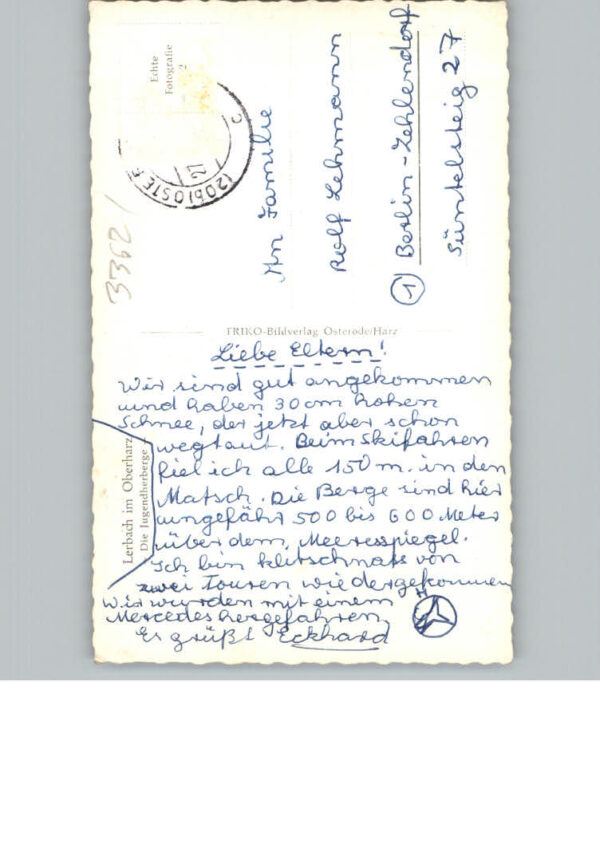 Echte
Fotografie
2
(20b) OSTE
21
c
3362/
An Familie
Rolf Lehmann
(1) Berlin-Zehlendorf
Süntelsteig 27
FRIKO-Bildverlag Osterode/Harz
Lerbach im Oberharz
Die Jugendherberge
Liebe Eltern!
Wir sind gut angekommen
und haben 30 cm hohen
Schnee, der jetzt aber schon
wegtaut. Beim Skifahren
fiel ich alle 150 m. in den
Matsch. Die Berge sind hier
ungefähr 500 bis 600 Meter
über dem Meeresspiegel.
Ich bin klitschnaß von
zwei Touren wiedergekommen
Wir wurden mit einem
Mercedes hergefahren.
Es grüßt Eckhard